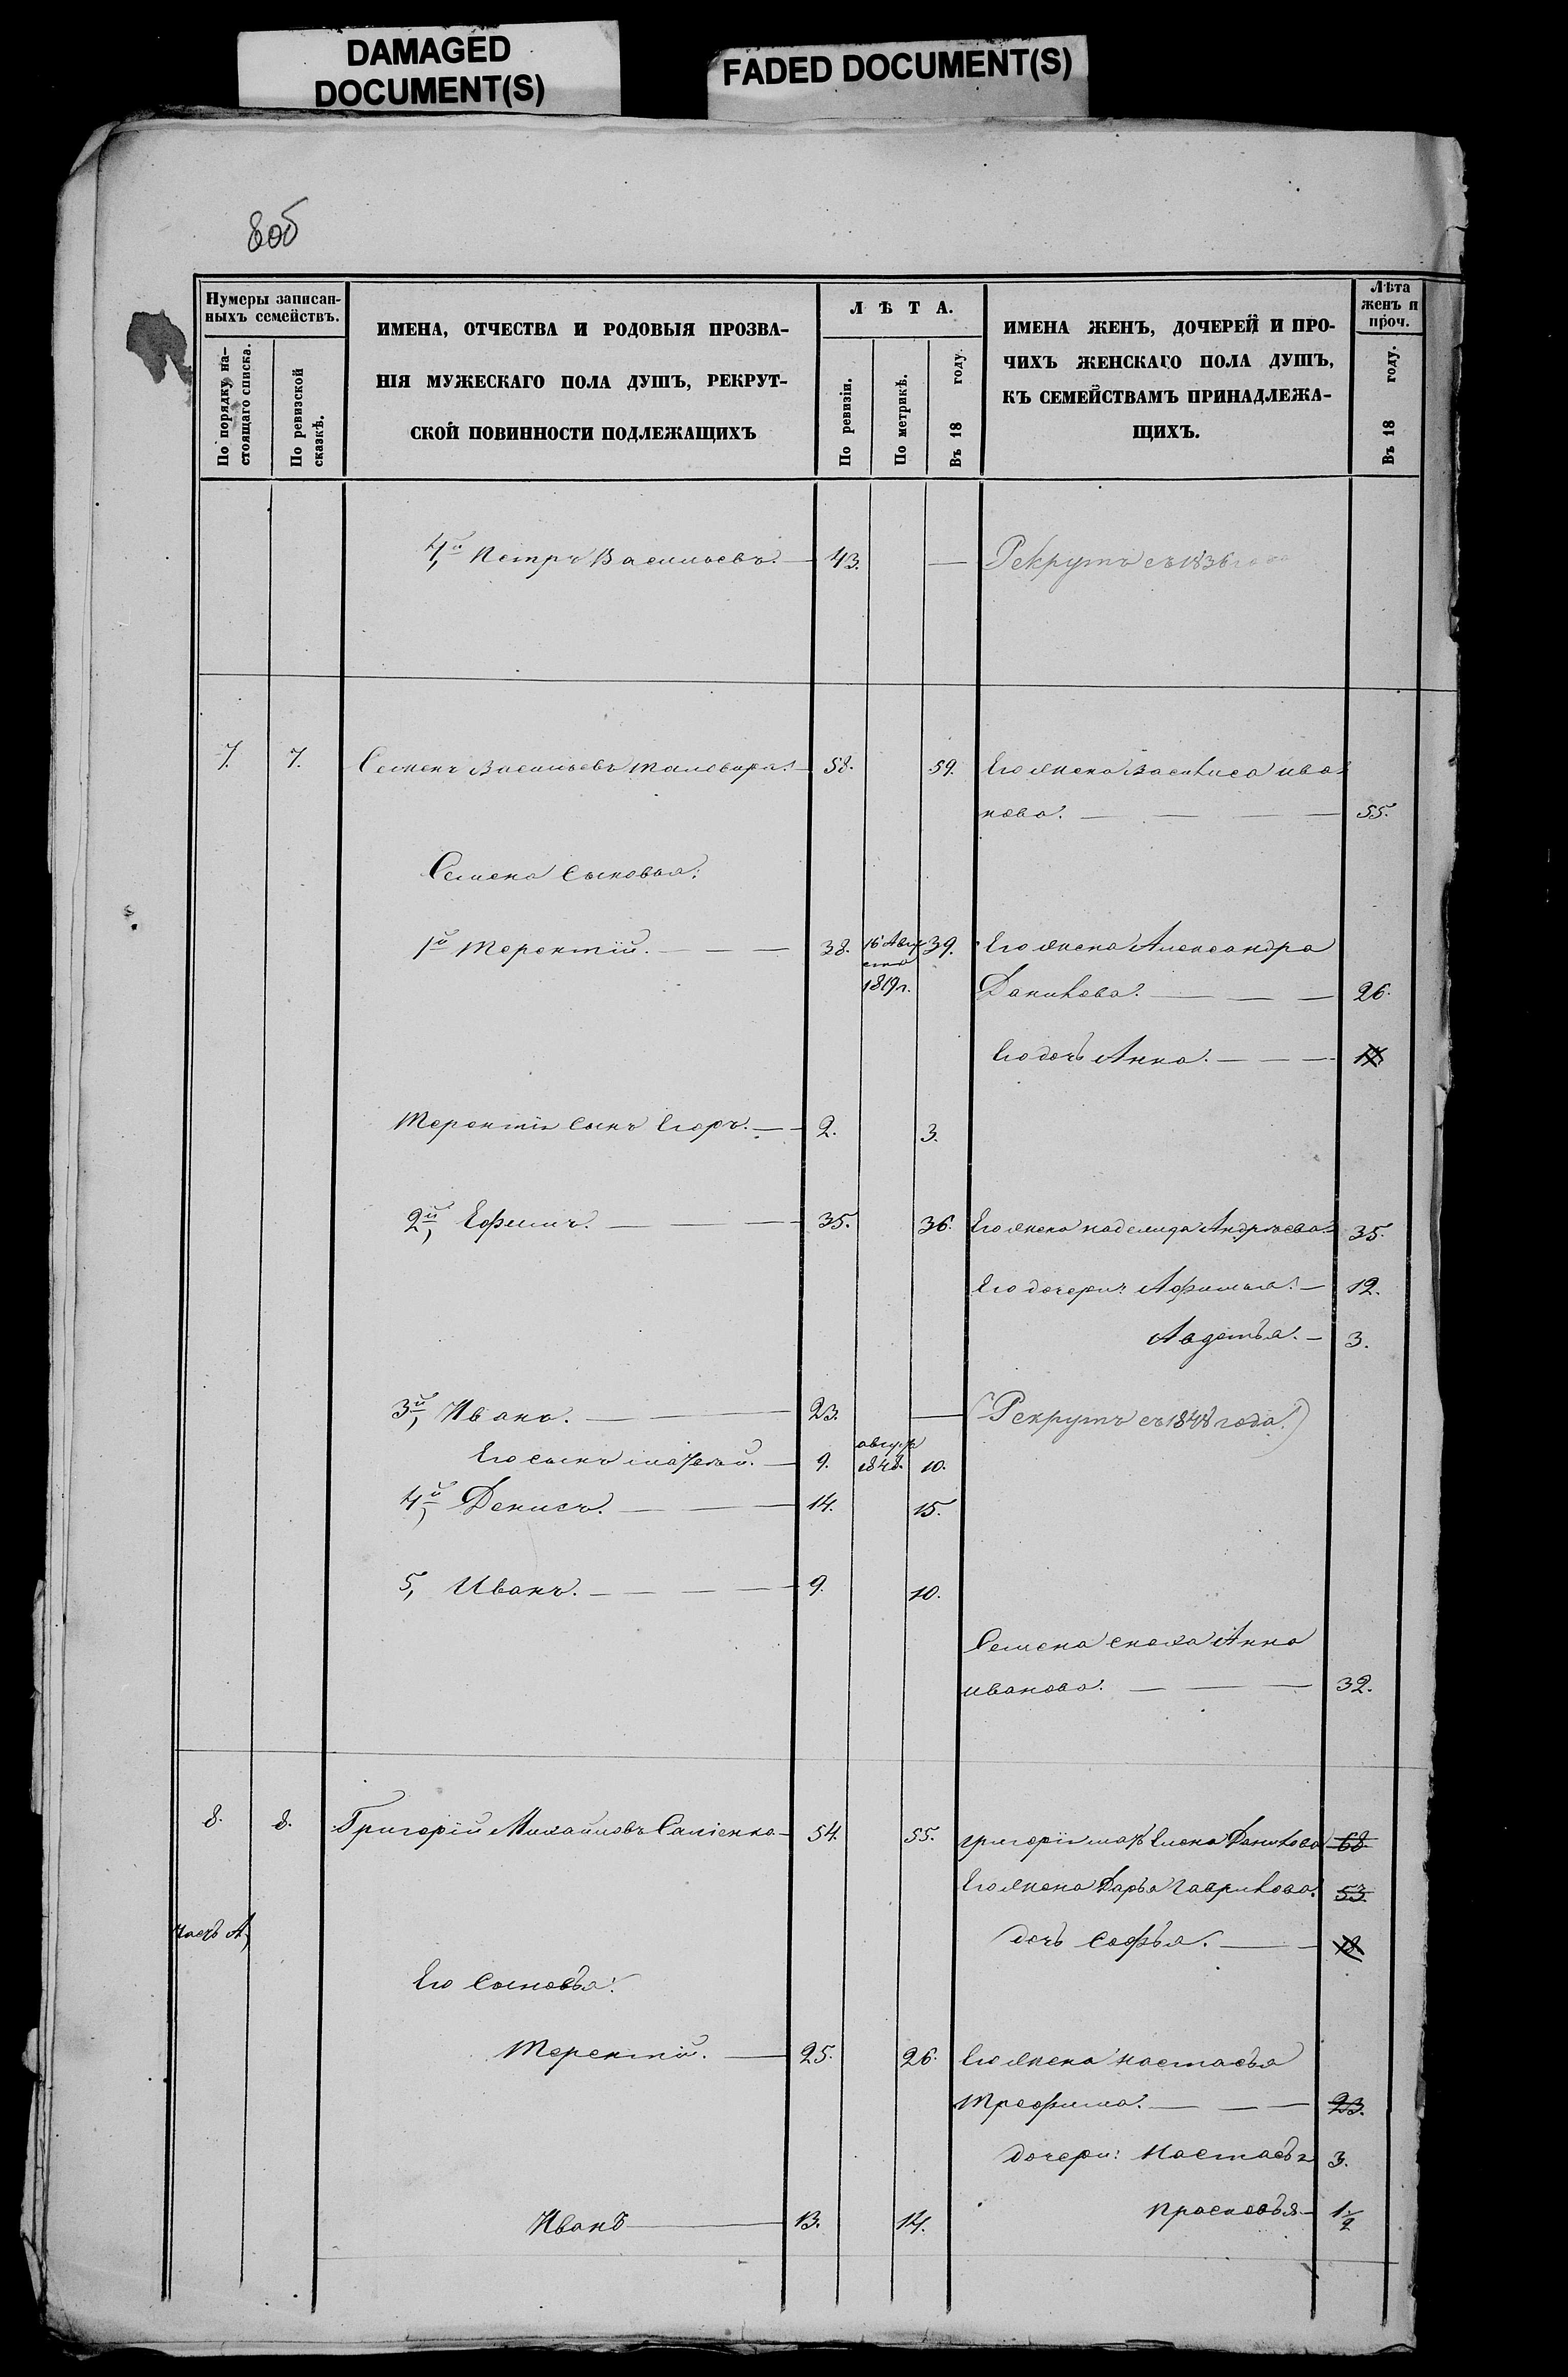 DAMAGED
DOCUMENT(S)
FADED DOCUMENT(S)
8об
Нумеры записан-
ныхъ семействъ.
По порядку на-
стоящаго списка.
По ревизской
сказкѣ.
ИМЕНА, ОТЧЕСТВА И РОДОВЫЯ ПРОЗВА-
НІЯ МУЖЕСКАГО ПОЛА ДУШЪ, РЕКРУТ-
СКОЙ ПОВИННОСТИ ПОДЛЕЖАЩИХЪ
ЛѢТА.
По ревизіи.
По метрикѣ.
Въ 18 году.
ИМЕНА ЖЕНЪ, ДОЧЕРЕЙ И ПРО-
ЧИХЪ ЖЕНСКАГО ПОЛА ДУШЪ,
КЪ СЕМЕЙСТВАМЪ ПРИНАДЛЕЖА-
ЩИХЪ.
Лѣта
женъ и
проч.
Въ 18 году.
4й, Петръ Васильевъ. — 43. — Рекрутъ съ 1836 года
7. 7. Семенъ Васильевъ 58. 59. Его жена Василиса Ива-
нова. — 55.
Семена сыновья:
1й Терентій. — 38. 16 Авгу 39. Его жена Александра
ста
1819 г. Данилова. — 26.
Его дочь Анна. —
Терентія сынъ Егоръ. — 2. 3.
2й, Ефимъ. — 35. 36. Его жена Андреева. 35.
Его дочери Афимья. — 12.
Авдотья. — 3.
3й, Иванъ. — 23. — (Рекрутъ съ 1848 года.)
Его сынъ — 9. 1848. 10.
4й, Денисъ. — 14. 15.
5, Иванъ. — 9. 10.
Семена сноха Анна
Иванова. — 32.
8. 8. Григорій Михайловъ Сапіенко — 54. 55. Григорія мать Елена Данилова 68.
Его жена Дарья Гаврилова. 53.
дочь Софья. — 18.
Его сыновья:
Терентій. — 25. 26. Его жена Настасья
Трофима. — 23.
дочери: Настасья 3.
Иванъ — 13. 14. Прасковья — 1/2